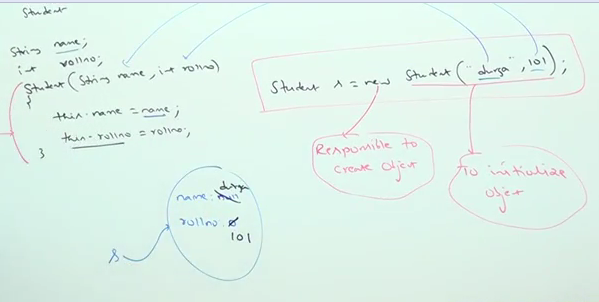 Student
String name;
int rollno;
Student(String name, int rollno)
{
this.name = name;
this.rollno = rollno;
}
Student s = new Student("durga", 101);
Responsible to
create object
To initialize
object
durga
name: null
rollno: 0
101
s